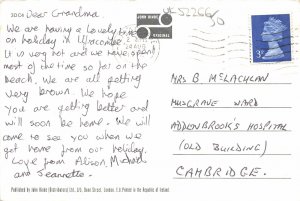 Dear Grandma
We are having a lovely time
on holiday in Ilfracombe.
It is very hot and we have spent
most of the time so far on the
beach. We are all getting
very brown. We hope
you are getting better and
will soon be home. We will
come to see you when we
get home from our holiday.
Love from Alison, Michael
and Jeannette.
JOHN HINDE
ORIGINAL
MRS B MCLACHLAN
MUSGRAVE WARD
ADDENBROOK'S HOSPITAL
(OLD BUILDING)
CAMBRIDGE.
Published by John Hinde (Distributors) Ltd., Dean Street, London. Printed in the Republic of Ireland